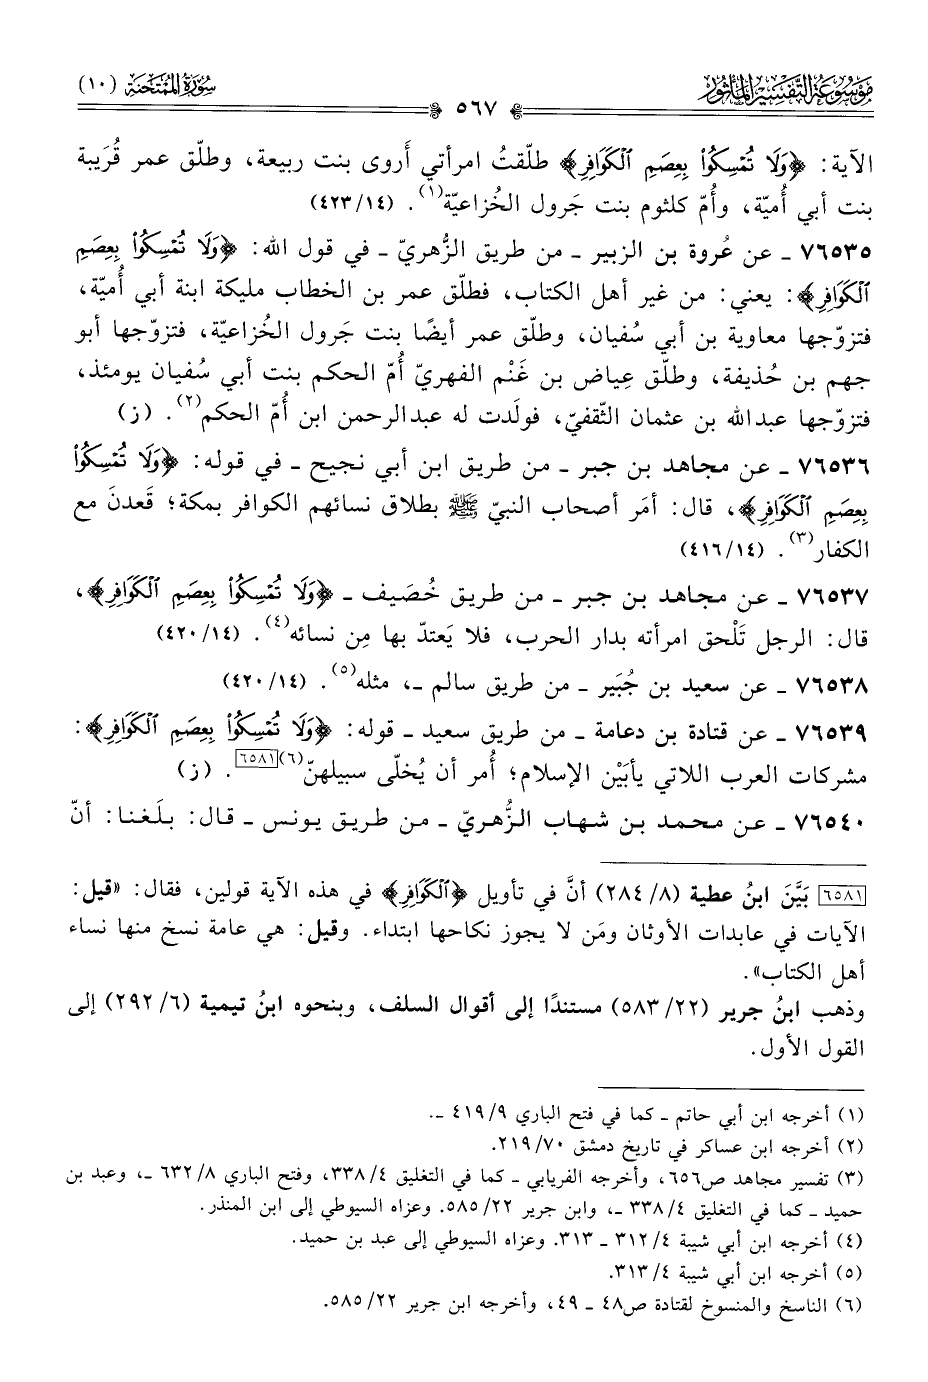 مَوْسُوعَةُ التَّفْسِيرِ المَأْثُور
٥٦٧
سُورَةُ المُمْتَحَنَةِ (١٠)
الآية: ﴿وَلَا تُمْسِكُوا۟ بِعِصَمِ ٱلْكَوَافِرِ﴾ طلّقتُ امرأتي أَروى بنت ربيعة، وطلّق عمر قُرَيبة
بنت أبي أُميّة، وأُمّ كلثوم بنت جَرول الخُزاعيّة(١). (٤٢٣/١٤)
٧٦٥٣٥ ـ عن عُروة بن الزبير ـ من طريق الزُّهريّ ـ في قول الله: ﴿وَلَا تُمْسِكُوا۟ بِعِصَمِ
ٱلْكَوَافِرِ﴾: يعني: من غير أهل الكتاب، فطلّق عمر بن الخطاب مليكة ابنة أبي أُميّة،
فتزوّجها معاوية بن أبي سُفيان، وطلّق عمر أيضًا بنت جَرول الخُزاعيّة، فتزوّجها أبو
جهم بن حُذيفة، وطلّق عِياض بن غَنْم الفهريّ أُمّ الحكم بنت أبي سُفيان يومئذ،
فتزوّجها عبدالله بن عثمان الثّقفيّ، فولَدت له عبدالرحمن ابن أُمّ الحكم(٢). (ز)
٧٦٥٣٦ ـ عن مجاهد بن جبر ـ من طريق ابن أبي نجيح ـ في قوله: ﴿وَلَا تُمْسِكُوا۟
بِعِصَمِ ٱلْكَوَافِرِ﴾، قال: أمَر أصحاب النبيّ ﷺ بطلاق نسائهم الكوافر بمكة؛ قَعدنَ مع
الكفار(٣). (٤١٦/١٤)
٧٦٥٣٧ ـ عن مجاهد بن جبر ـ من طريق خُصَيف ـ ﴿وَلَا تُمْسِكُوا۟ بِعِصَمِ ٱلْكَوَافِرِ﴾،
قال: الرجل تَلْحق امرأته بدار الحرب، فلا يَعتدّ بها مِن نسائه(٤). (٤٢٠/١٤)
٧٦٥٣٨ ـ عن سعيد بن جُبَير ـ من طريق سالم ـ، مثله(٥). (٤٢٠/١٤)
٧٦٥٣٩ ـ عن قتادة بن دعامة ـ من طريق سعيد ـ قوله: ﴿وَلَا تُمْسِكُوا۟ بِعِصَمِ ٱلْكَوَافِرِ﴾:
مشركات العرب اللاتي يأبَيْن الإسلام؛ أُمر أن يُخلّى سبيلهنّ(٦)[٦٥٨١]. (ز)
٧٦٥٤٠ ـ عن محمد بن شهاب الزُّهريّ ـ من طريق يونس ـ قال: بلَغنا: أنّ
[٦٥٨١] بَيَّنَ ابنُ عطية (٨/ ٢٨٤) أنَّ في تأويل ﴿ٱلْكَوَافِرِ﴾ في هذه الآية قولين، فقال: «قيل:
الآيات في عابدات الأوثان ومَن لا يجوز نكاحها ابتداء. وقيل: هي عامة نسخ منها نساء
أهل الكتاب».
وذهب ابنُ جرير (٢٢/ ٥٨٣) مستندًا إلى أقوال السلف، وبنحوه ابنُ تيمية (٦/ ٢٩٢) إلى
القول الأول.
(١) أخرجه ابن أبي حاتم ـ كما في فتح الباري ٩/ ٤١٩ ـ.
(٢) أخرجه ابن عساكر في تاريخ دمشق ٧٠/ ٢١٩.
(٣) تفسير مجاهد ص٦٥٦، وأخرجه الفريابي ـ كما في التغليق ٤/ ٣٣٨، وفتح الباري ٨/ ٦٣٢ ـ، وعبد بن
حميد ـ كما في التغليق ٤/ ٣٣٨ ـ، وابن جرير ٢٢/ ٥٨٥. وعزاه السيوطي إلى ابن المنذر.
(٤) أخرجه ابن أبي شيبة ٤/ ٣١٢ ـ ٣١٣. وعزاه السيوطي إلى عبد بن حميد.
(٥) أخرجه ابن أبي شيبة ٤/ ٣١٣.
(٦) الناسخ والمنسوخ لقتادة ص٤٨ ـ ٤٩، وأخرجه ابن جرير ٢٢/ ٥٨٥.